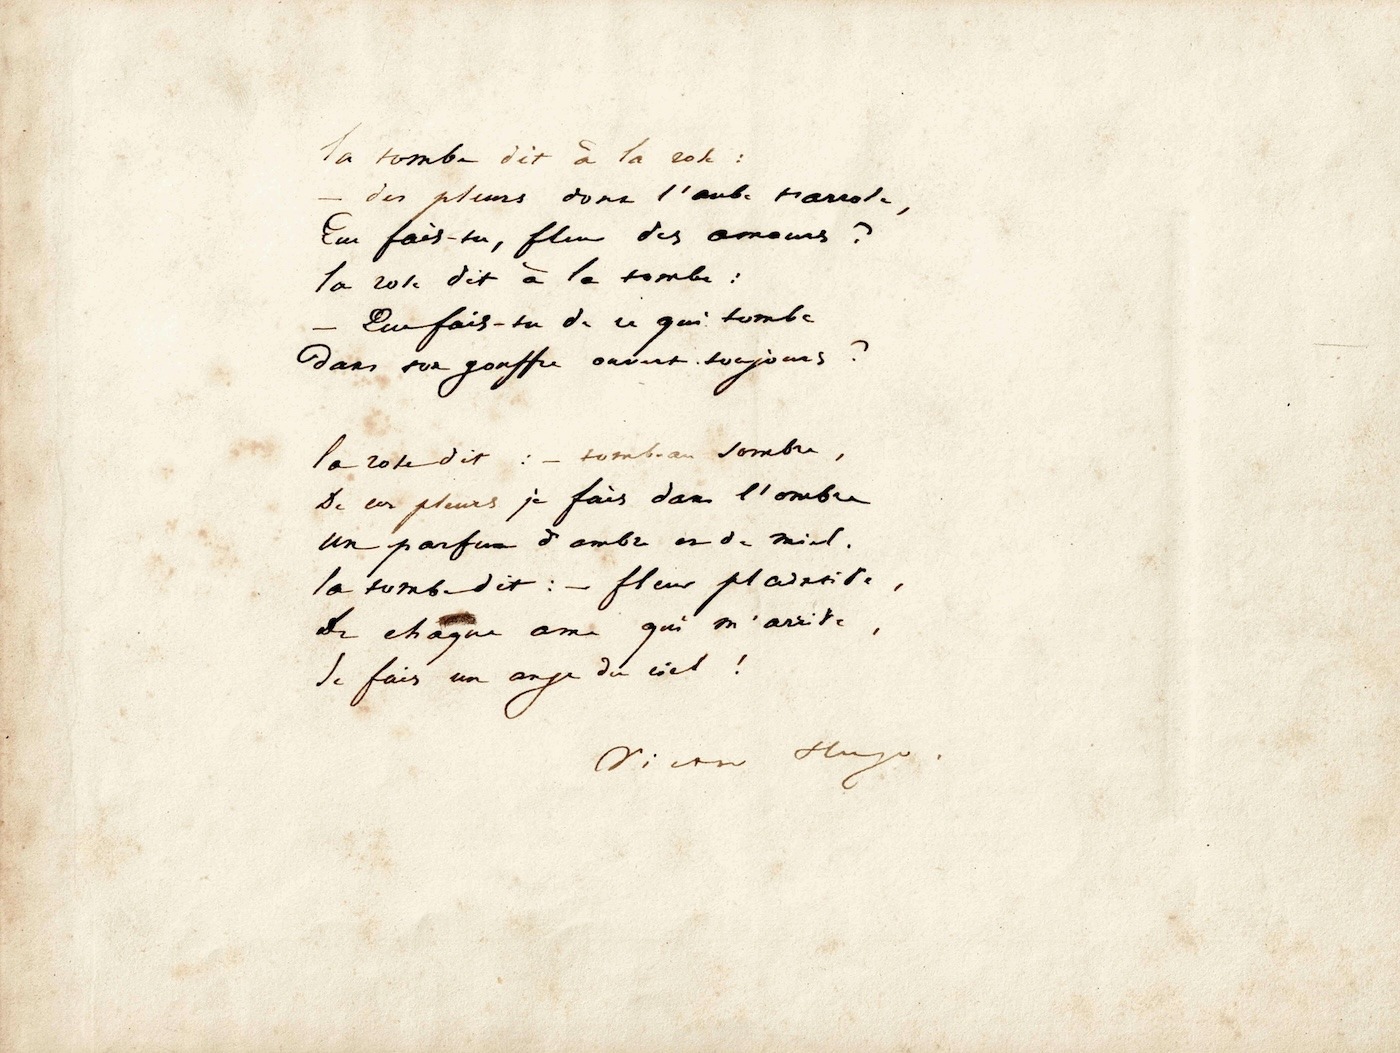 la tombe dit à la rose :
— des pleurs dont l'aube t'arrose,
Que fais-tu, fleur des amours ?
la rose dit à la tombe :
— Que fais-tu de ce qui tombe
Dans ton gouffre ouvert toujours ?
la rose dit : — tombeau sombre,
De ces pleurs je fais dans l'ombre
Un parfum d'ambre et de miel.
la tombe dit : — fleur plaintive,
De chaque ame qui m'arrive,
Je fais un ange du ciel !
Victor Hugo.